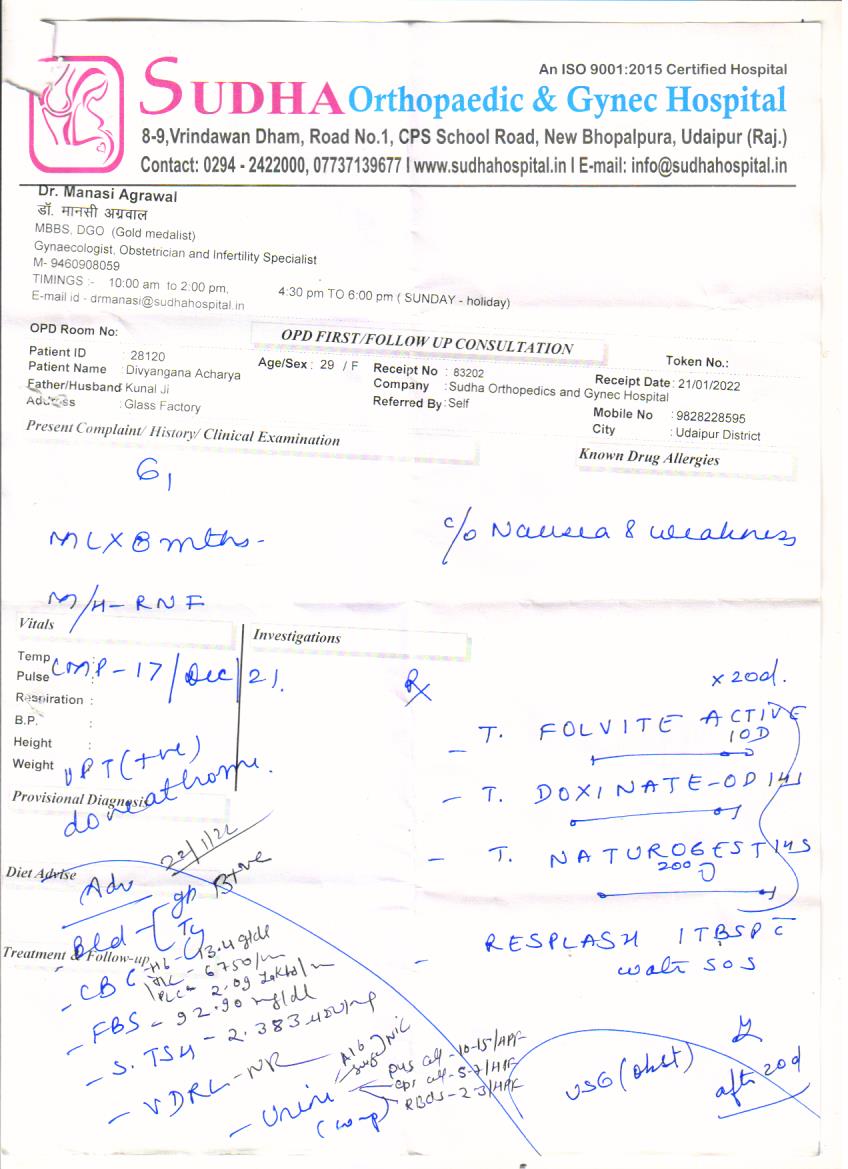 An ISO 9001:2015 Certified Hospital
SUDHA Orthopaedic & Gynec Hospital
8-9,Vrindawan Dham, Road No.1, CPS School Road, New Bhopalpura, Udaipur (Raj.)
Contact: 0294 - 2422000, 07737139677 I www.sudhahospital.in I E-mail: info@sudhahospital.in
Dr. Manasi Agrawal
डॉ. मानसी अग्रवाल
MBBS, DGO (Gold medalist)
Gynaecologist, Obstetrician and Infertility Specialist
M- 9460908059
TIMINGS :- 10:00 am to 2:00 pm, 4:30 pm TO 6:00 pm ( SUNDAY - holiday)
E-mail id - drmanasi@sudhahospital.in
OPD Room No:
OPD FIRST/FOLLOW UP CONSULTATION
Token No.:
Patient ID : 28120
Patient Name : Divyangana Acharya
Age/Sex : 29 / F
Receipt No : 83202
Receipt Date : 21/01/2022
Father/Husband: Kunal Ji
Company : Sudha Orthopedics and Gynec Hospital
Address : Glass Factory
Referred By : Self
Mobile No : 9828228595
City : Udaipur District
Present Complaint/ History/ Clinical Examination
Known Drug Allergies
G1
ML X 8 mths-
c/o Nausea & weakness
M/H- RNF
Vitals
Investigations
Temp :
Pulse :
LMP - 17/Dec/21.
Respiration :
B.P. :
Height :
Weight :
UPT (+ve)
done at home.
Provisional Diagnosis
Rx
x 20d.
- T. FOLVITE ACTIVE
1OD
- T. DOXINATE-OD 1HS
- T. NATUROGEST 1HS
200
- RESPLASH 1TBSP c̄
water SOS
Diet Advise
Adv 22/1/22
Bld gp B+ve
Treatment & Follow-up
- CBC - Hb - 13.4 g/dl
TLC - 6750/m
PLC - 2.09 lakhs/m
- FBS - 92.90 mg/dl
- S. TSH - 2.383
- VDRL - NR
- Urine Alb Sugar Nil
pus cell - 10-15/HPF
epi cell - 5-7/HPF
RBCs - 2-3/HPF
USG (obst)
after 20d